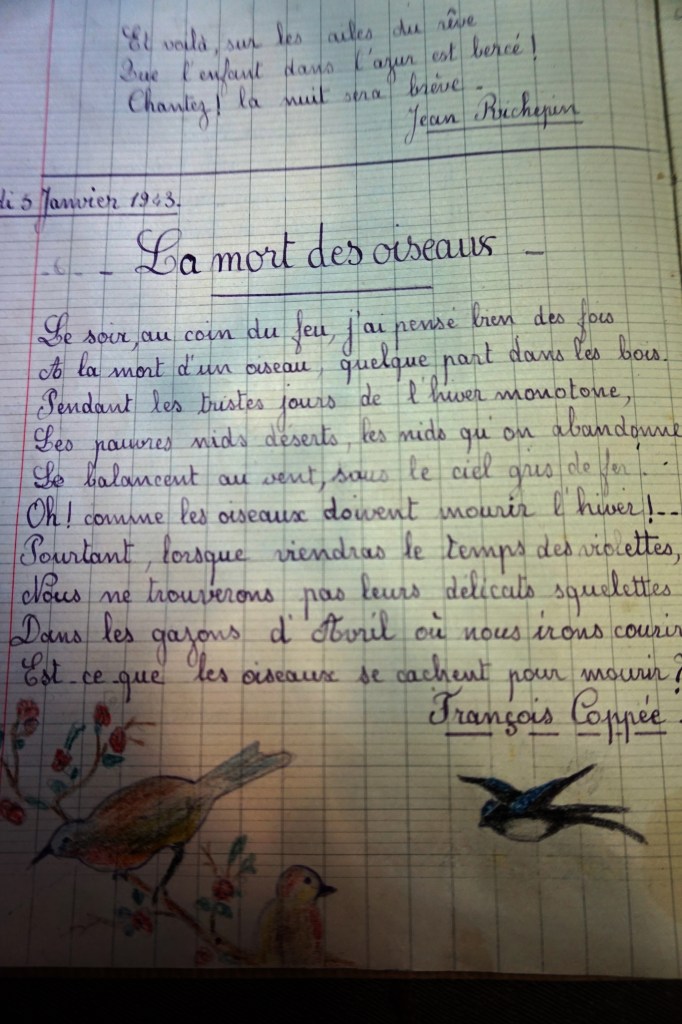 Et voilà, sur les ailes du rêve
Que l'enfant dans l'azur est bercé !
Chantez ! la nuit sera brève.
Jean Richepin
di 5 Janvier 1943.
La mort des oiseaux
Le soir, au coin du feu, j'ai pensé bien des fois
A la mort d'un oiseau, quelque part dans les bois.
Pendant les tristes jours de l'hiver monotone,
Les pauvres nids déserts, les nids qu'on abandonne
Se balancent au vent, sous le ciel gris de fer.
Oh! comme les oiseaux doivent mourir l'hiver!--
Pourtant, lorsque viendras le temps des violettes,
Nous ne trouverons pas leurs délicats squelettes
Dans les gazons d'Avril où nous irons courir
Est-ce-que les oiseaux se cachent pour mourir?
François Coppée.